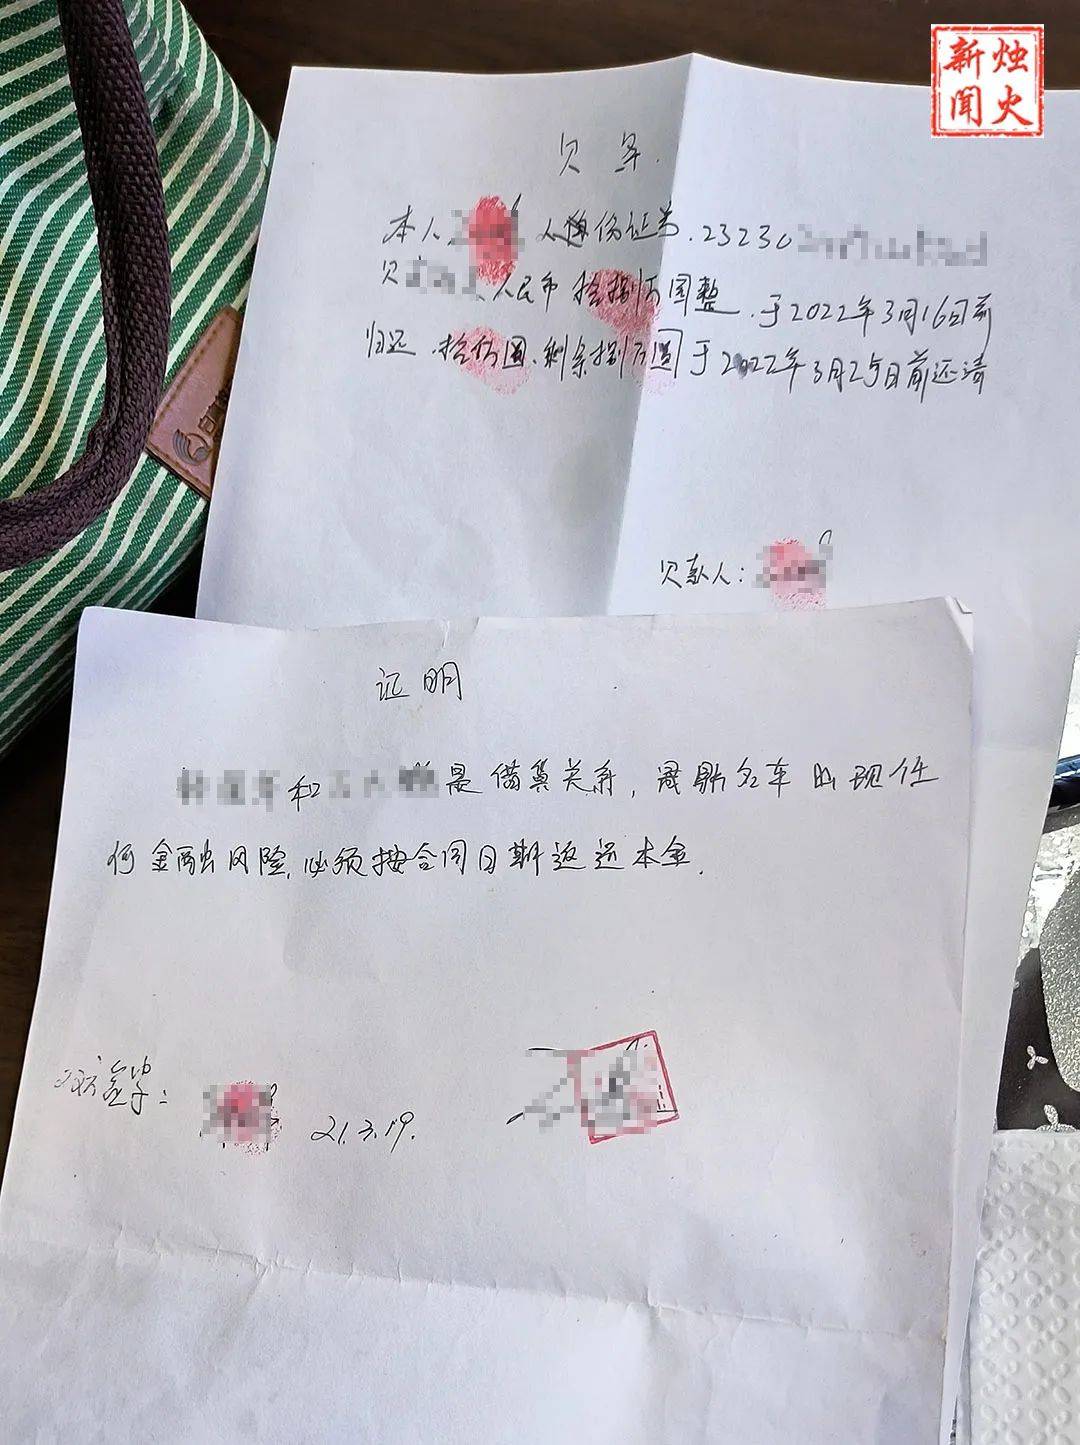 新烛
闻火
欠条.
本人 人身份证号.23230
欠 人民币 拾捌万圆整.于2022年3月16日前
归还.拾万圆.剩余捌万圆于2022年3月25日前还清
欠款人:
证明
和 是借贷关系,
何金融风险.必须按合同日期返还本金.
21.3.19.